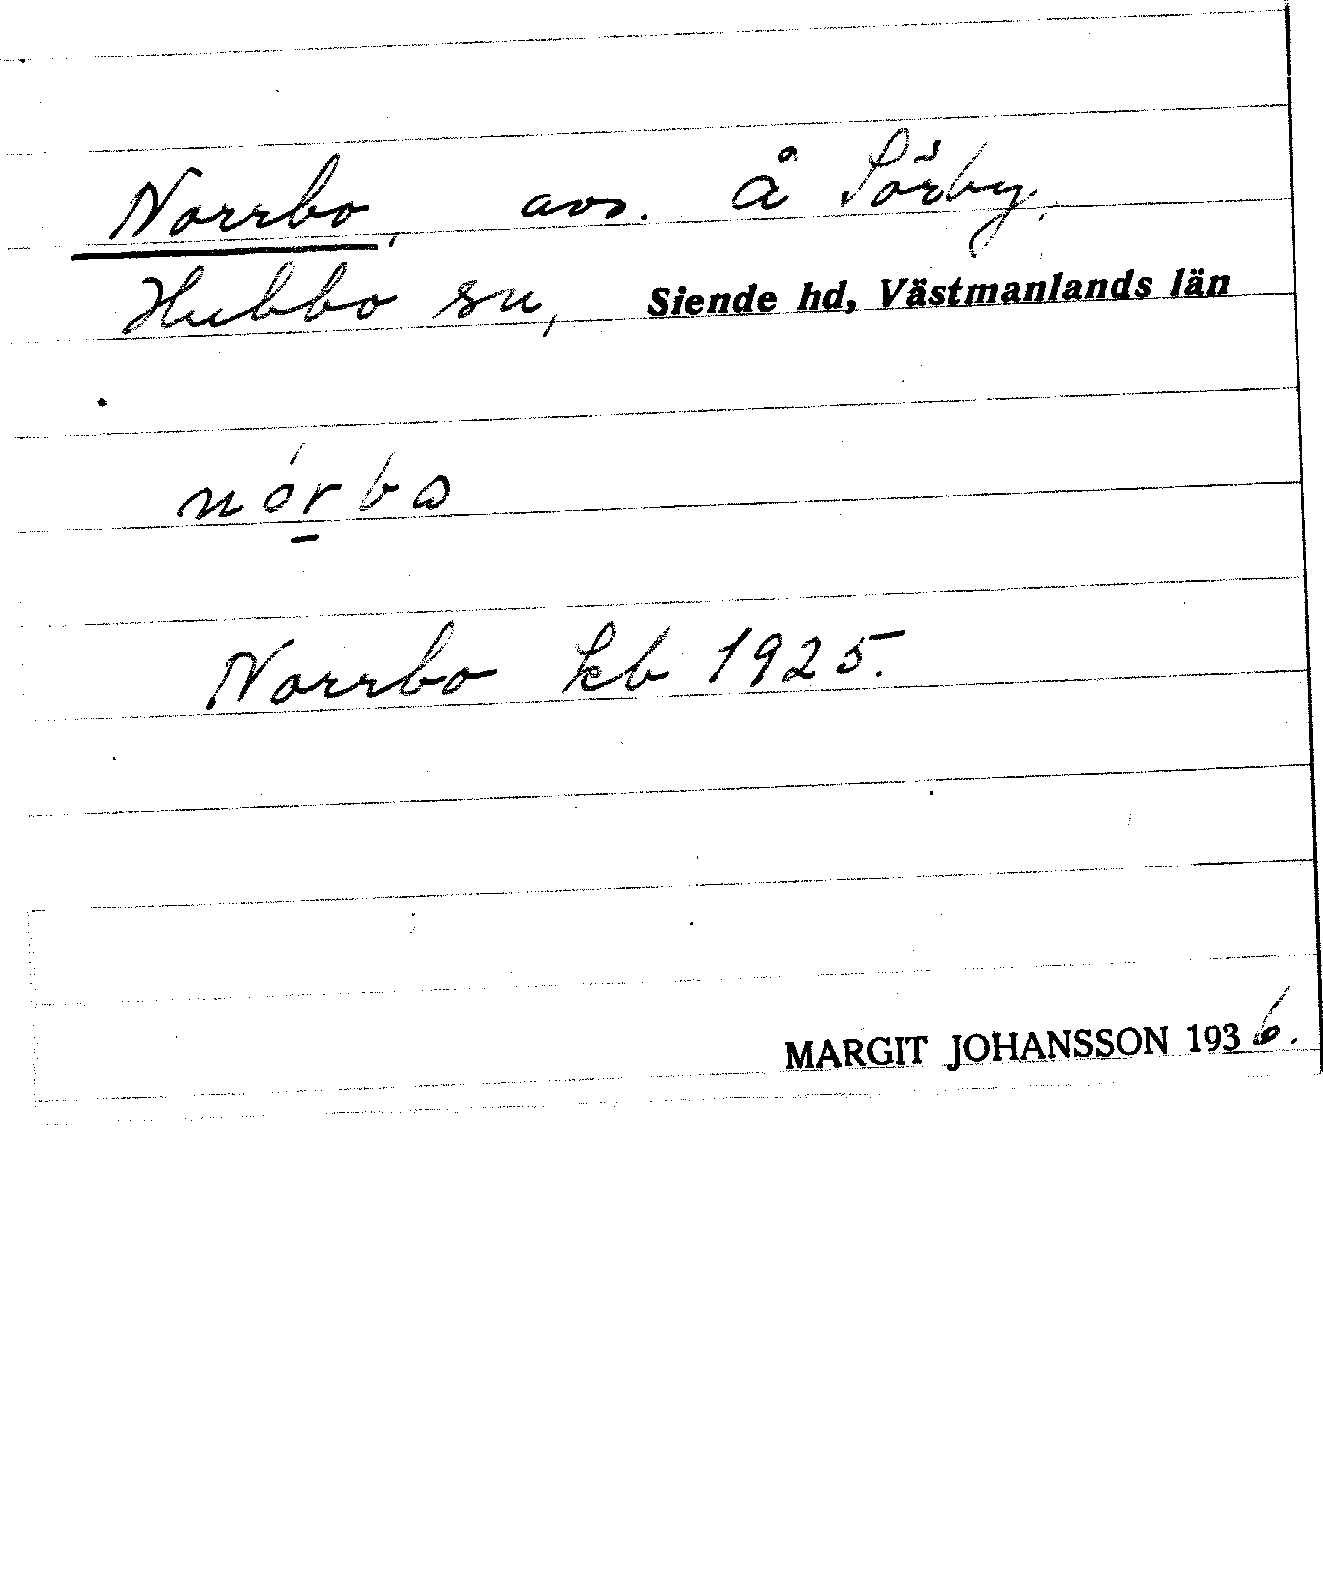 Norrbo, avs. å Sörby,
Hubbo sn, Siende hd, Västmanlands län
nórba
Norrbo kb 1925.
MARGIT JOHANSSON 1936.